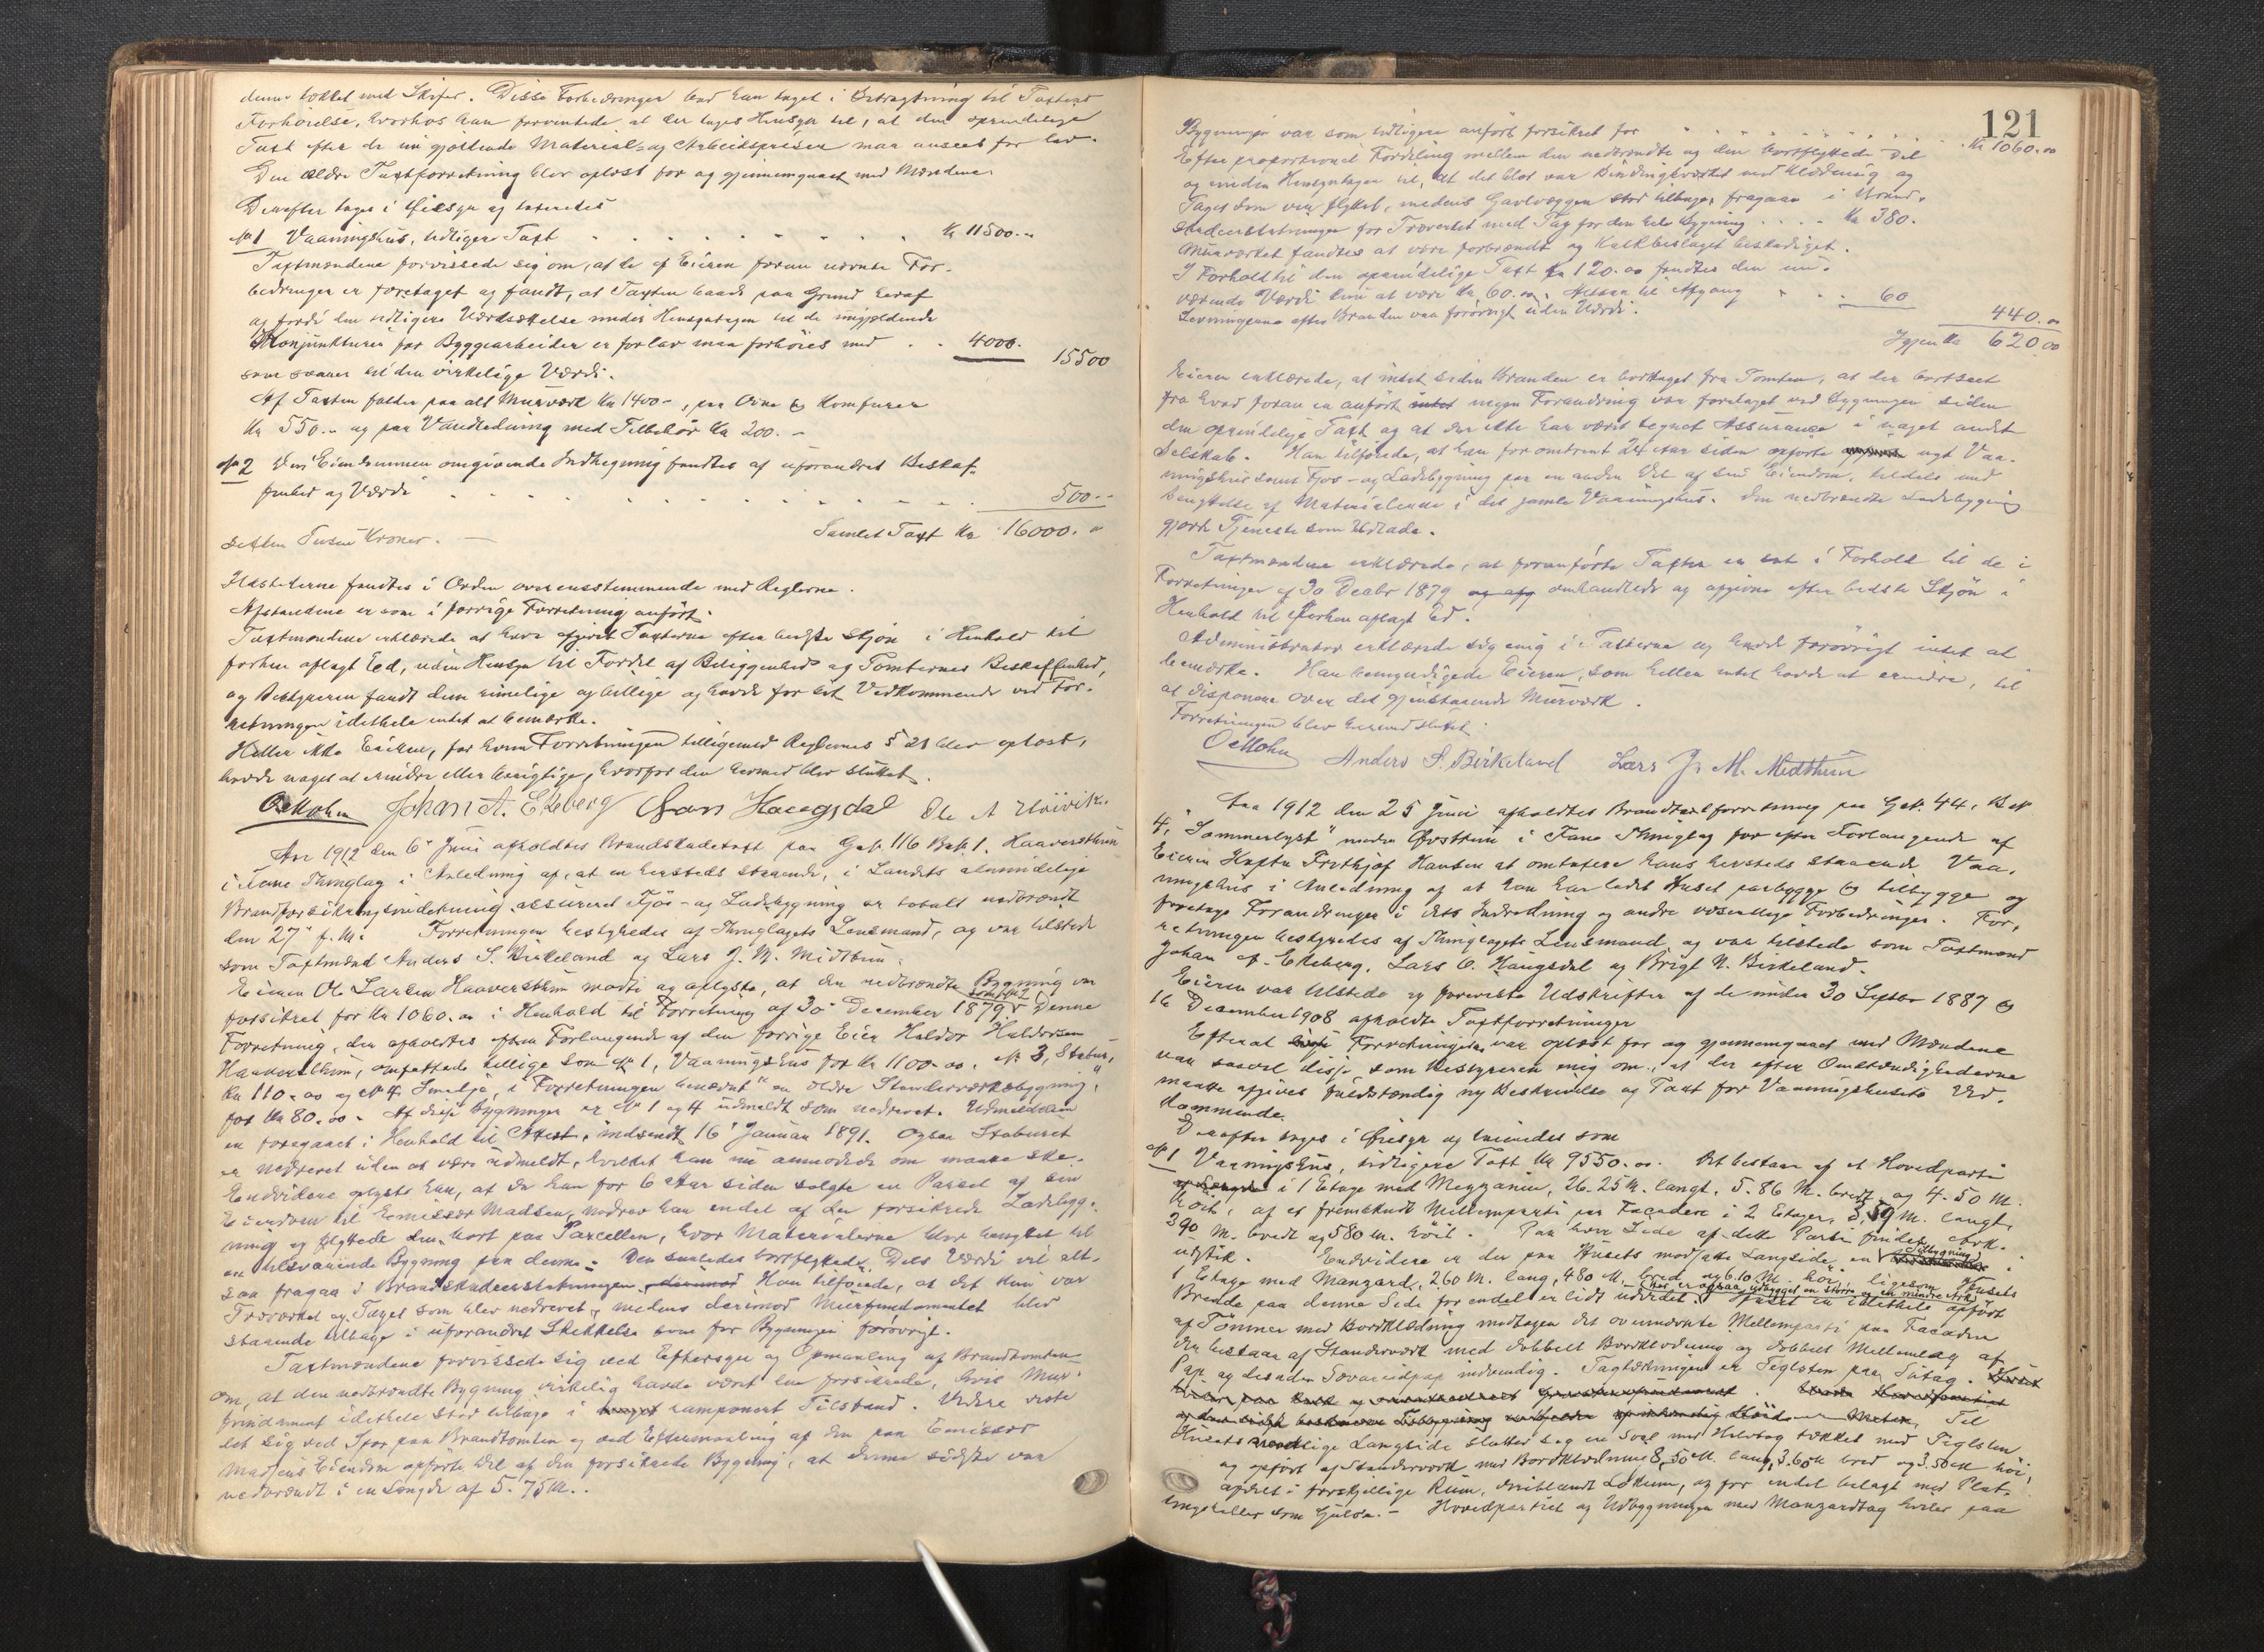 denne tækket med Skifer. Disse Forbedringer bad han taget i Betragtning til Taxtens
Forhøielse, hvorhos han forventede at der toges Hensyn til, at den oprindelige
Taxt efter de nu gjældende Material- og Arbeidspriser maa ansees for lav.
Den ældre Taxtforretning blev oplæst for og gjennemgaaet med Mændene.
Derefter toges i Øiesyn og taxeredes
No 1 Vaaningshus, tidligere Taxt . . . . . . . . . Kr 11500.-
Taxtmændene forvissede sig om, at de af Eieren foran nævnte For-
bedringer er foretaget og fandt, at Taxten baade paa Grund heraf
og fordi den tidligere Værdsættelse under Hensyntagen til de nugjældende
Konjunkturer for Byggearbeider er for lav maa forhøies med . . 4000.- 15500
som svarer til den virkelige Værdi.
Af Taxten falder paa alt Murværk Kr 1400-, paa Ovne og Komfurer
Kr 550.- og paa Vandledning med Tilbehør Kr 200.-
No 2 Den Eiendommen omgivende Indhegning fandtes af uforandret Beskaf-
fenhed og Værdi . . . . . . . . . . 500.-
Samlet Taxt Kr 16000.-
Sexten Tusen Kroner.
Ildstederne fandtes i Orden overensstemmende med Reglerne.
Afstandene er som i forrige Forretning anført.
Taxtmændene erklærede at have afgivet Taxterne efter bedste Skjøn i Henhold til
forhen aflagt Eed, uden Hensyn til Fordel af Beliggenhed og Tomternes Beskaffenhed,
og Bestyreren fandt dem rimelige og billige og havde for sit Vedkommende ved For-
retningen idethele intet at bemærke.
Heller ikke Eieren, for hvem Forretningen tilligemed Reglernes § 21 blev oplæst,
havde noget at erindre eller berigtige, hvorfor den hermed blev sluttet.
O. Mohn Johan A. Ekeberg Lars Haugsdal Ole A
Aar 1912 den 6' Juni afholdtes Brandskadetaxt paa Gsk. 116 Bsk. 1. Haaversthun
i Fane Thinglag i Anledning af, at en hersteds staaende, i Landets almindelige
Brandforsikringsindretning assureret Fjøs- og Ladebygning er totalt nedbrændt
den 27' f. M. Forretningen bestyredes af Thinglagets Lensmand, og var tilstede
som Taxtmænd Anders S. Birkeland og Lars J. M. Midthun.
Eieren Ole Larsen Haaversthun mødte og oplyste, at den nedbrændte Bygning var
forsikret for Kr 1060.00 i Henhold til Forretning af 30' December 1879 som No 2. Denne
Forretning, der afholdtes efter Forlangende af den forrige Eier Haldor Haldorsen
Haaversthun, omfattede tillige som No 1, Vaaningshus for Kr 1100.00. No 3, Stabur,
Kr 110.00 og No 4 Smalfjø, i Forretningen benævnt "en ældre Standerværksbygning",
for Kr 80.00. Af disse Bygninger er No 1 og 4 udmeldt som nedrevet. Udmeldelsen
er foregaaet i Henhold til Attest, indsendt 16' Januar 1891. Ogsaa Staburet
er nedrevet uden at være udmeldt, hvilket han nu anmodede om maatte ske.
Endvidere oplyste han, at da han for 6 Aar siden solgte en Parcel af sin
Eiendom til Emissær Madsen, nedrev han endel af den forsikrede Ladebyg-
ning og flyttede den bort paa Parcellen, hvor Materialerne blev benyttet til
en tilsvarende Bygning paa denne. Den saaledes bortflyttede Dels Værdi vil alt-
saa fragaa i Brandskadeerstatningen. Han tilføiede, at det kun var
Træværket og Taget som blev nedrevet, medens derimod Murfundamentet blev
staaende tilbage i uforandret Skikkelse som for Bygningen forøvrigt.
Taxtmændene forvissede sig ved Eftersyn og Opmaaling af Brandtomten
om, at den nedbrændte Bygning virkelig havde været den forsikrede, hvis Mur-
fundament idethele stod tilbage i ramponert Tilstand. Videre viste
det sig ved Spor paa Brandtomten og ved Eftermaaling af den paa Emissær
Madsens Eiendom opførte Del af den forsikrede Bygning, at denne sidste var
nedbrændt i en Længde af 5.75 M.
121
Bygningen var som tidligere anført forsikret for . . . . . . . . . Kr 1060.00
Efter proportionel Fordeling mellem den nedbrændte og den bortflyttede Del
og under Hensyntagen til, at det blot var Bindingsværket med Klædning og
Taget som var flyttet, medens Gavlvæggen stod tilbage, fragaar i Brand-
skadeerstatningen for Træverket med Tag for den hele Bygning . . . . Kr 380.
Murværket fandtes at være forbrændt og Kalkbeslaget beskadiget.
I Forhold til den oprindelige Taxt Kr 120.00 fandtes den nu-
værende Værdi kun at være Kr 60.00. Altsaa til Afgang . . . 60
Levningerne efter Branden var forøvrigt uden Værdi. 440.00
Igjen Kr 620.00
Eieren erklærede, at intet siden Branden er borttaget fra Tomten, at der bortseet
fra hvad foran er anført ingen Forandring var foretaget ved Bygningen siden
den oprindelige Taxt og at der ikke har været tegnet Assurance i noget andet
Selskab. Han tilføiede, at han for omtrent 24 Aar siden opførte nyt Vaa-
ningshus samt Fjøs- og Ladebygning paa en anden Del af sin Eiendom, tildels med
benyttelse af Materialerne i det gamle Vaaningshus. Den nedbrændte Ladebygning
gjorde Tjeneste som Udlade.
Taxtmændene erklærede, at foranførte Taxter er sat i Forhold til de i
Forretningen af 30 Decbr 1879 omhandlede og afgivne efter bedste Skjøn i
Henhold til forhen aflagt Ed.
Administrator erklærede sig enig i Taxterne og havde forøvrigt intet at
bemærke. Han bemyndigede Eieren, som heller intet havde at erindre, til
at disponere over det gjenstaaende Murværk.
Forretningen blev herved sluttet.
O. Mohn Anders S. Birkeland Lars J. M. Midthun
Aar 1912 den 25 Juni afholdtes Brandtaxtforretning paa Gsk. 44, Bsk
4, "Sommerlyst" under Øvsthun i Fane Thinglag efter Forlangende af
Eieren Kaptn Frithjof Hansen at omtaxere hans hersteds staaende Vaa-
ningshus i Anledning af at han har ladet Huset paabygge og tilbygge og
foretage Forandringer i dets Indredning og andre væsentlige Forbedringer. For-
retningen bestyredes af Thinglagets Lensmand, og var tilstede som Taxtmænd
Johan A. Ekeberg, Lars O. Haugsdal og Brigt N. Birkeland.
Eieren var tilstede og foreviste Udskrifter af de under 30 Septbr 1887 og
16 December 1908 afholdte Taxtforretninger
Efterat Forretningerne var oplæst for og gjennemgaaet med Mændene
var saavel disse som Bestyreren enig om, at der efter Omstændighederne
maatte afgives fuldstændig ny Beskrivelse og Taxt for Vaaningshusets Ved-
kommende.
Derefter toges i Øiesyn og taxeredes som
No 1 Vaaningshus, tidligere Taxt Kr 9550.00. Det bestaar af et Hovedparti
i 1 Etage med Mezzanin, 26.25 M. langt, 5.86 M. bredt og 4.50 M.
høit, af et fremskudt Mellemparti paa Facaden i 2 Etager, 3,59 M. langt,
390 M. bredt og 580 M. høit. Paa hver Side af dette Parti findes Ark-
udstik. Endvidere er der paa Husets modsatte Langside en Udbygning i
1 Etage med Manzard, 260 M. lang, 480 M. bred og 6.10 M. høi, ligesom Husets
Bredde paa denne Side for endel er lidt udvidet. Her er ogsaa udbygget en større og en mindre Ark. Huset er idethele opført
af Tømmer med Bordklædning undtagen det ovennævnte Mellemparti paa Facaden
der bestaar af Standerværk med dobbelt Bordklædning og dobbelt Mellemlag af
Pap og desuden Sovareidpap indvendig. Taglækningen er Teglsten paa Sutag.
Til
Husets Langside slutter sig en Sval med Halvtag tækket med Teglsten
og opført af Standerværk med Bordklædning 8,50 M. lang, 3.60 M bred og 3.50 M høi,
afdelt i forskjellige Rum, deriblandt Lokum, og for endel belagt med Plat-
tingsheller som Gulv. - Hovedpartiet og Udbygningen med Manzardtag hviler paa